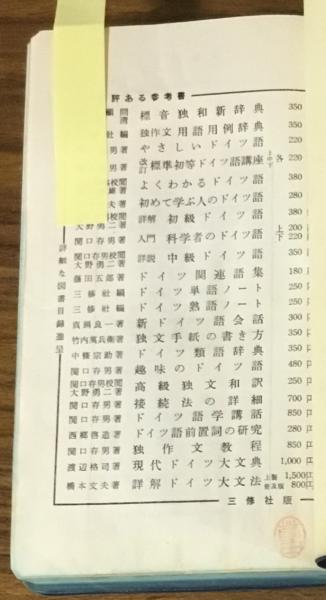 評ある参考書
標音独和新辞典 350
社編 独作文用語用例辞典 350
男著 やさしいドイツ語 220
男著 改訂標準初等ドイツ語講座 上中下 各220
よくわかるドイツ語 380
夫著 初めて学ぶ人のドイツ語 380
大野勇二著 詳解 初級ドイツ語 200
関口存男著 入門 科学者のドイツ語 上下 220
関口存男校閲 大野勇二著 詳説 中級ドイツ語 350
藤田五郎著 ドイツ関連語集 180
三修社編 ドイツ単語ノート 250
三修社編 ドイツ熟語ノート 250
真鍋良一著 新ドイツ語会話 300
竹内萬兵衛著 独文手紙の書き方 350
中條宗助著 ドイツ類語辞典 350
関口存男著 趣味のドイツ語 480
関口存男校閲 大野勇二著 高級独文和訳 250
関口存男著 接続法の詳細 700円
関口存男著 ドイツ語学講話 850円
西郷啓造著 ドイツ語前置詞の研究 280円
関口存男著 独作文教程 850円
渡辺格司著 現代ドイツ大文典 1,000円
橋本文夫著 詳解ドイツ大文法 上製 1,500円 普及版 800円
詳細な図書目録進呈
三修社版